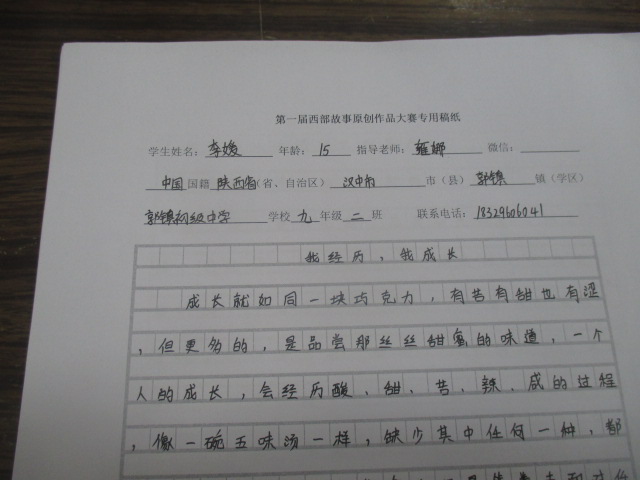 第一届西部故事原创作品大赛专用稿纸
学生姓名：李媛 年龄：15 指导老师：雍娜 微信：
中国国籍 陕西省（省、自治区）汉中市 市（县）郭镇 镇（学区）
郭镇初级中学 学校 九 年级 二 班 联系电话：18329606041
我经历，我成长
成长就如同一块巧克力，有苦有甜也有涩
，但更多的，是品尝那丝丝甜蜜的味道，一个
人的成长，会经历酸、甜、苦、辣、咸的过程
，像一碗五味汤一样，缺少其中任何一种，都